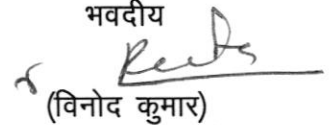 भवदीय
(विनोद कुमार)